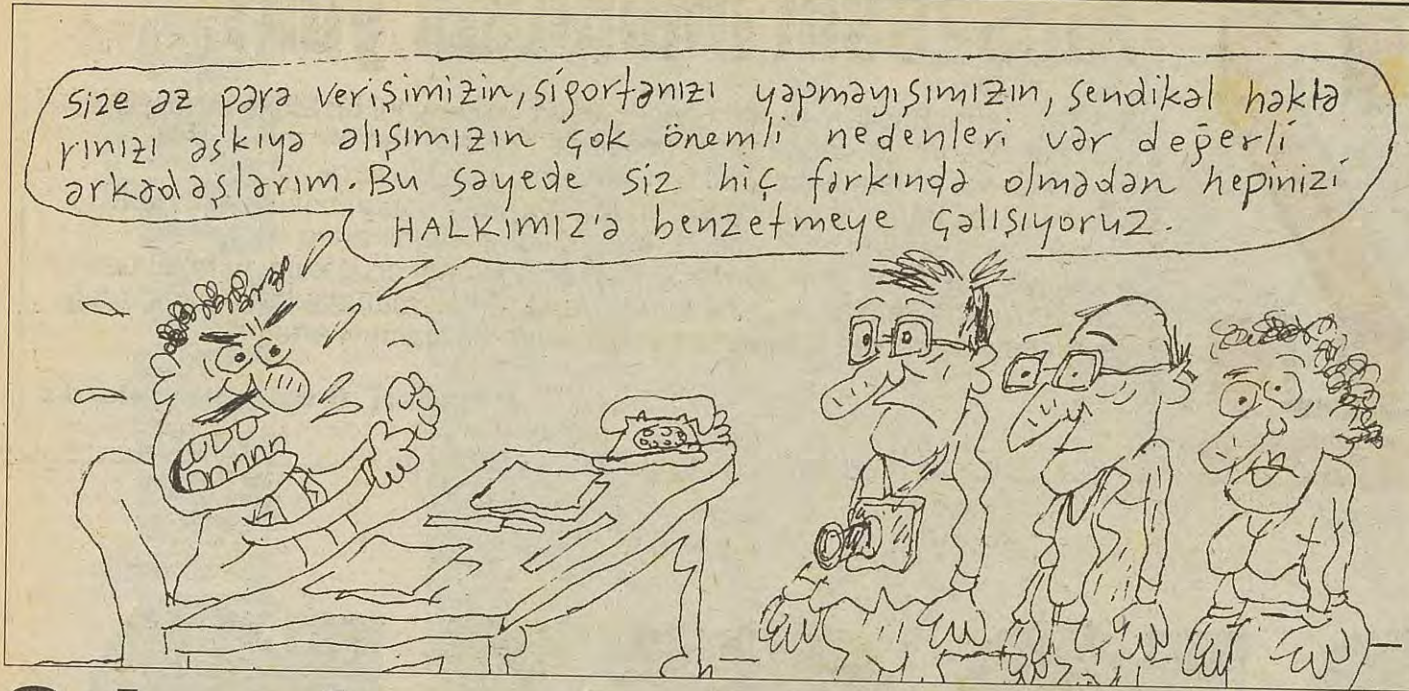 Size az para verişimizin, sigortanızı yapmayışımızın, sendikal hakla
rınızı askıya alışımızın çok önemli nedenleri var değerli
arkadaşlarım. Bu sayede siz hiç farkında olmadan hepinizi
HALKIMIZ'a benzetmeye çalışıyoruz.